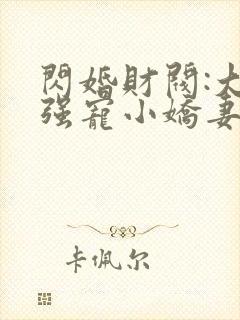 閃婚財閥:大
强寵小嬌妻
卡佩尔